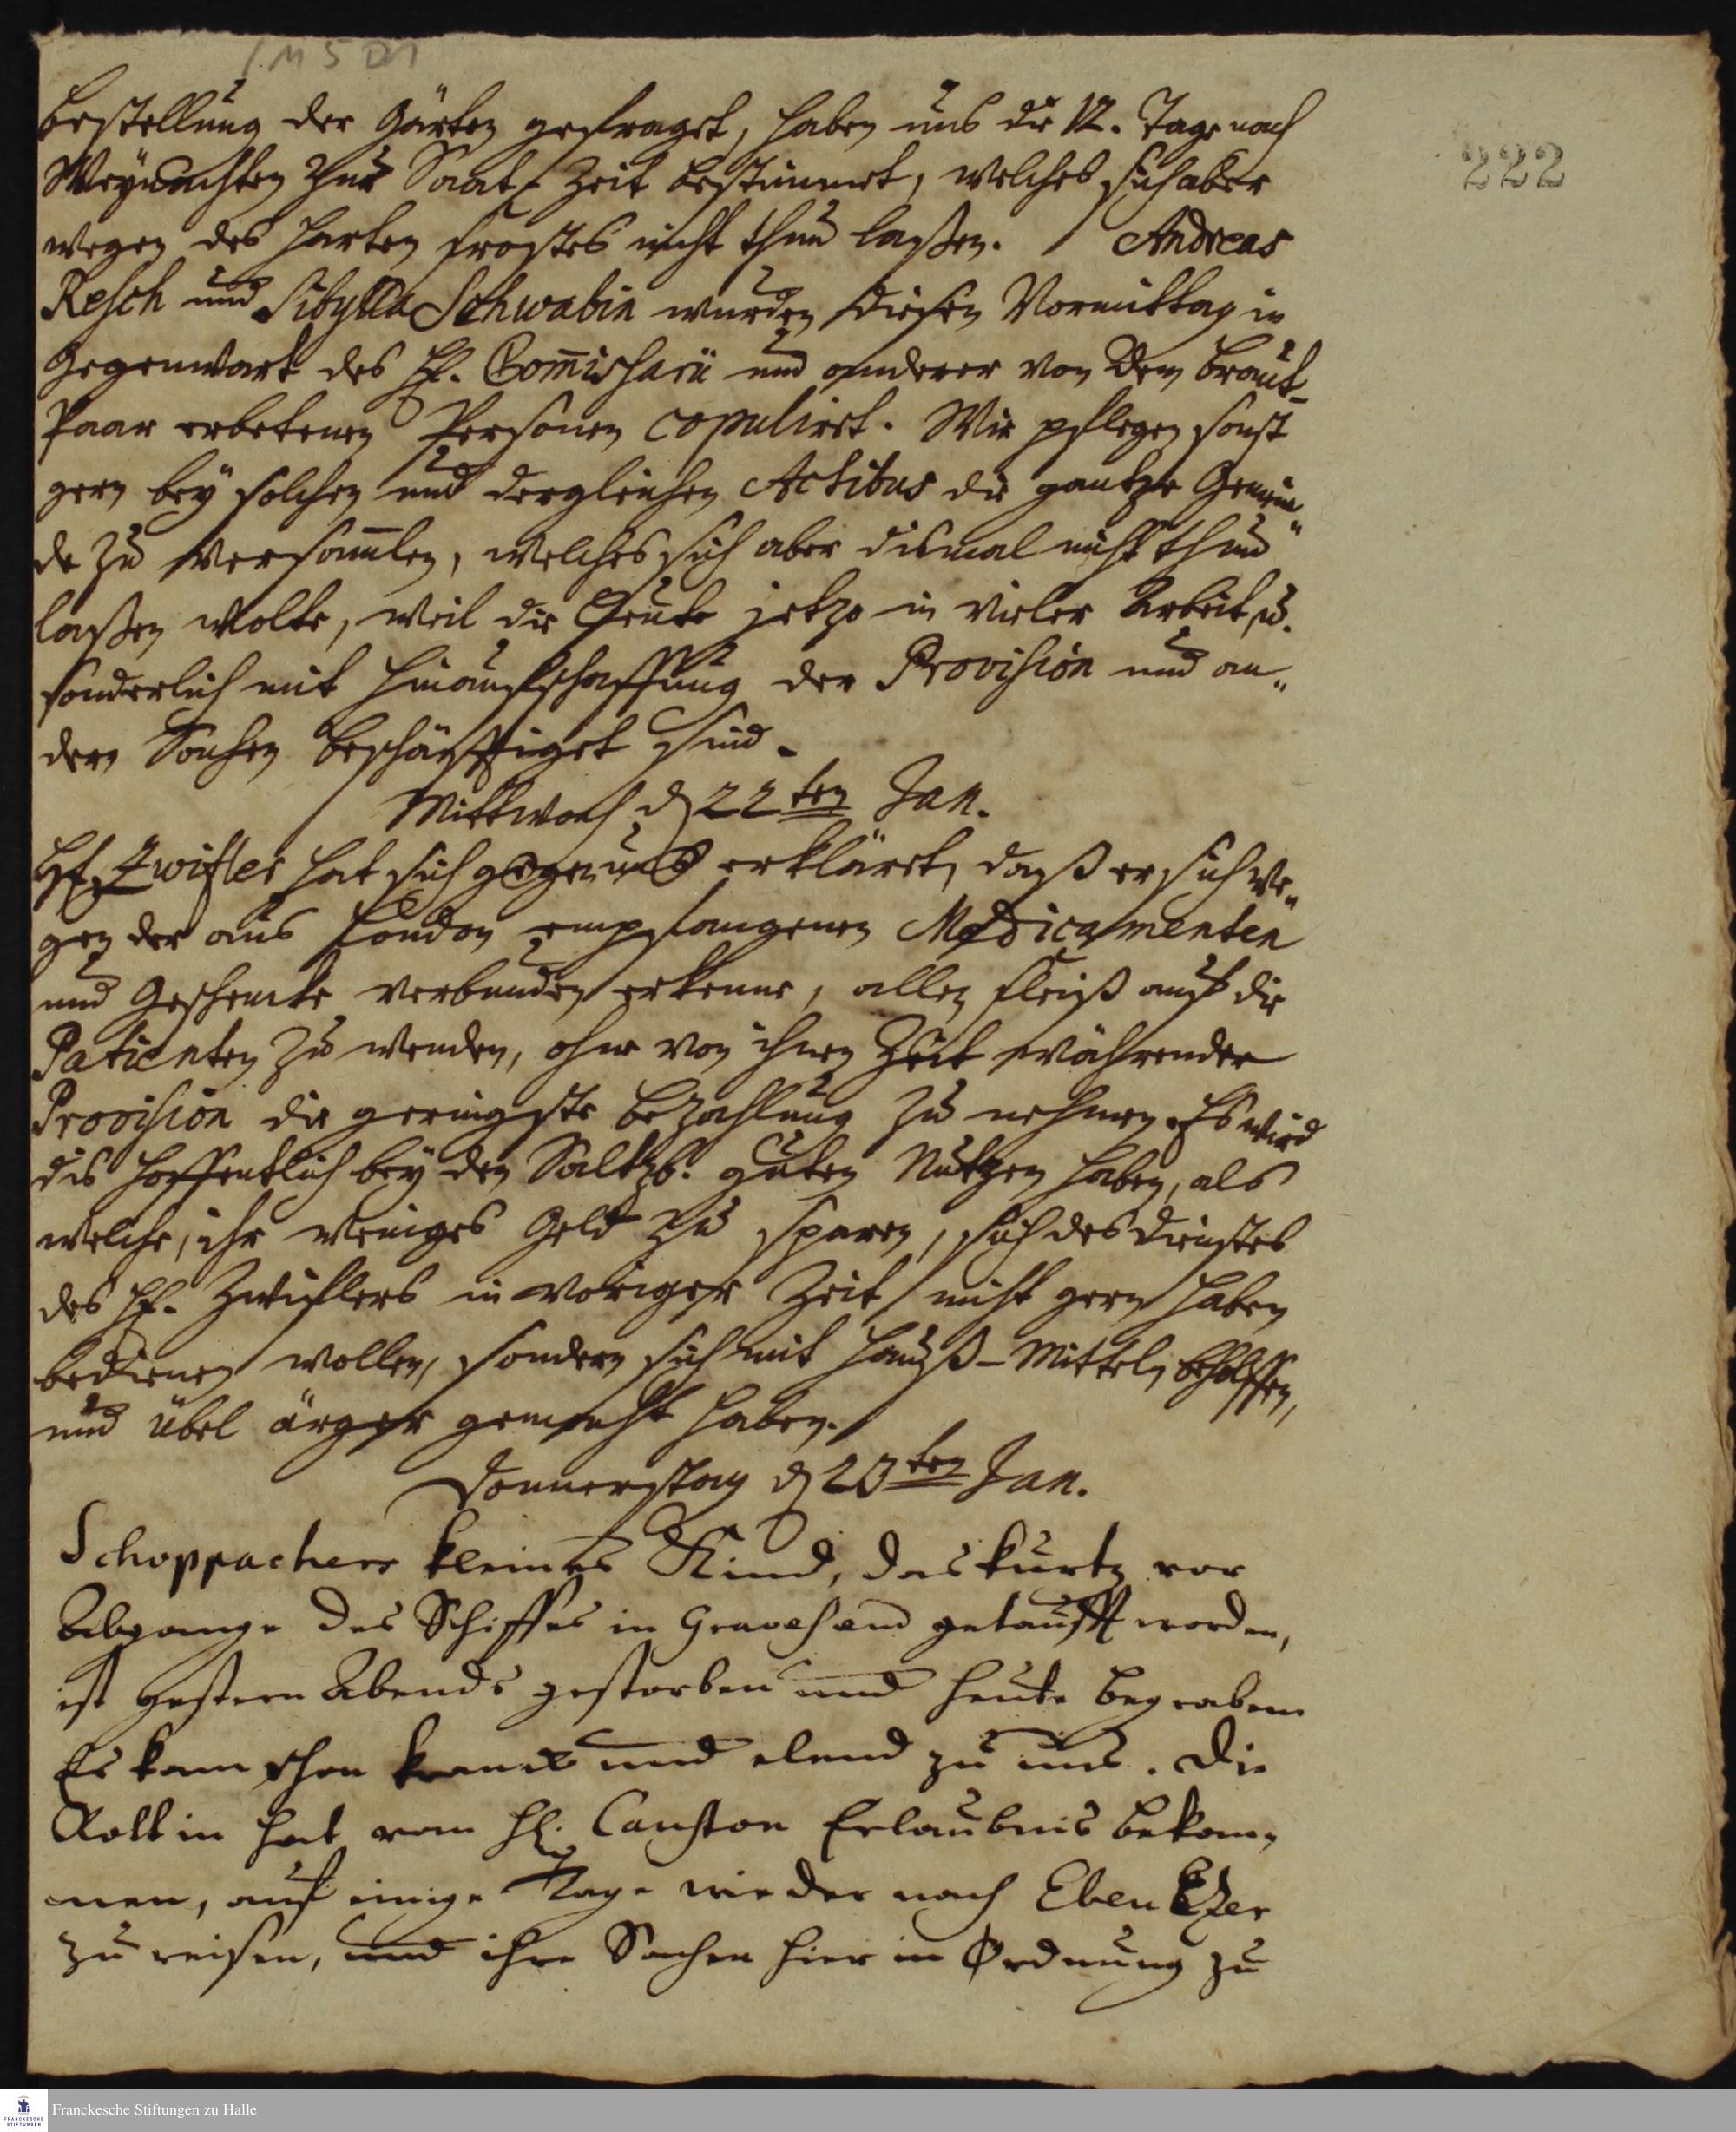 1 M 5 D1
222
bestellung der Gärten gefraget, haben uns die 12. Tage nach
Weynachten zur Saat-Zeit bestimmet, welches sich aber
wegen des harten frostes nicht thun laßen. / Andreas
Resch und Sibylla Schwabin wurden diesen Vormittag in
Gegenwart des H. Com̄issarii und anderer von dem braut-
Paar erbetenen Personen copuliret. Wir pflegen sonst
gern bey solchen und dergleichen Actibus die gantze Gemein„
de zu versam̄len, welches sich aber dismal nicht thun
laßen wolte, weil die Leute jetzo in vieler Arbeit, u.
sonderlich mit hinaufschaffung der Provision und an„
dern Sachen beschäfftiget sind.
Mittwoch d 22ten Jan.
H. Zwifler hat sich gegen uns erkläret, daß er sich we„
gen der aus London empfangenen Medicamenten
und Geschencke verbunden erkenne, allen fleiß auf die
Patienten zu wenden, ohne von ihnen Zeit währender
Provision die geringste bezahlung zu nehmen. Es wird
dis hoffentlich bey den Saltzb. guten Nutzen haben, als
welche, ihr weniges Geld zu sparen, sich des dienstes
des H. Zwiflers in voriger Zeit nicht gern haben
bedienen wollen, sondern sich mit Hauß-Mitteln beholffen,
und übel ärger gemacht haben.
Donnerstag d 23ten Jan.
Schoppachers kleines Kind, das kurtz vor
Abgange des Schiffes in Gravesand getaufft worden,
ist gestern Abends gestorben und heute begraben.
Es kam schon kranck und elend zu uns. Die
Rottin hat vom H. Causton Erlaubnis bekom„
men, auf einige Tage wieder nach Eben Ezer
zu reisen, und ihre Sachen hier in Ordnung zu
FRANCKESCHE
STIFTUNGEN
Franckesche Stiftungen zu Halle